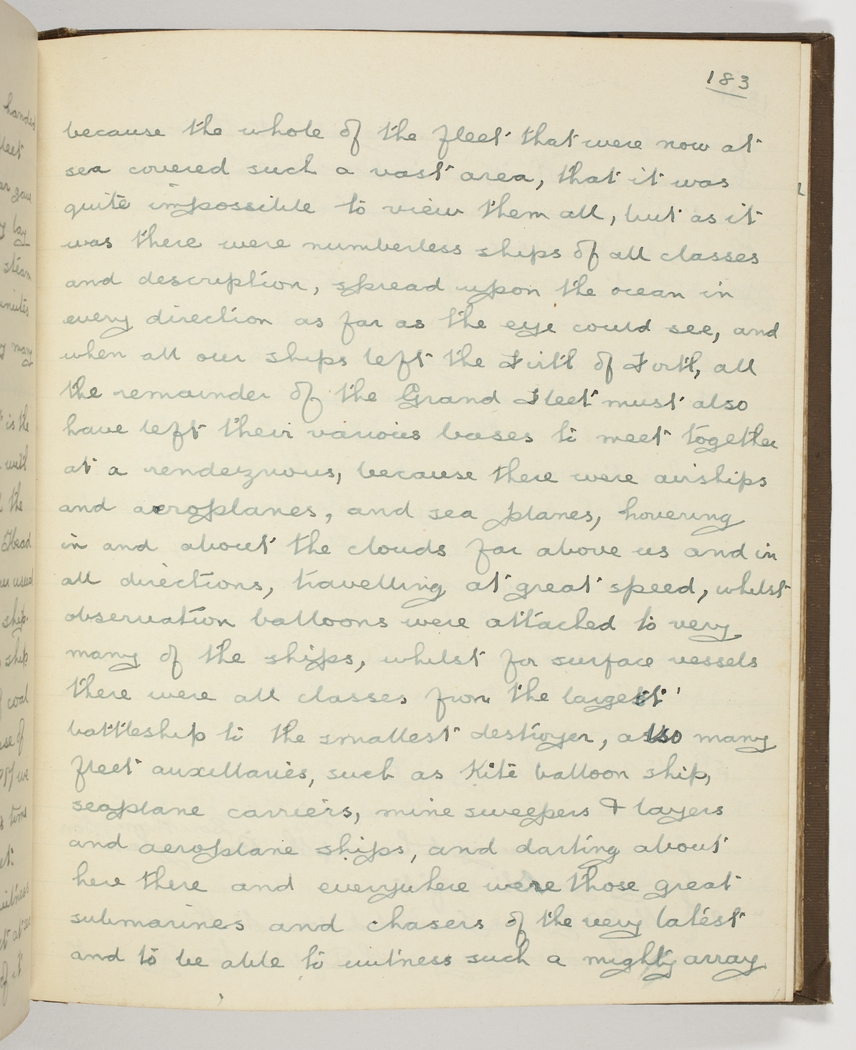 183
because the whole of the fleet that were now at
sea covered such a vast area, that it was
quite impossible to view them all, but as it
was there were numberless ships of all classes
and description, spread upon the ocean in
every direction as far as the eye could see, and
when all our ships left the Firth of Forth, all
the remainder of the Grand Fleet must also
have left their various bases to meet together
at a rendezvous, because there were airships
and aeroplanes, and sea planes, hovering
in and about the clouds far above us and in
all directions, travelling at great speed, whilst
observation balloons were attached to very
many of the ships, whilst for surface vessels
there were all classes from the largest
battleship to the smallest destroyer, also many
fleet auxillaries, such as Kite balloon ship,
seaplane carriers, mine sweepers & layers
and aeroplane ships, and darting about
here there and everywhere were those great
submarines and chasers of the very latest
and to be able to witness such a mighty array